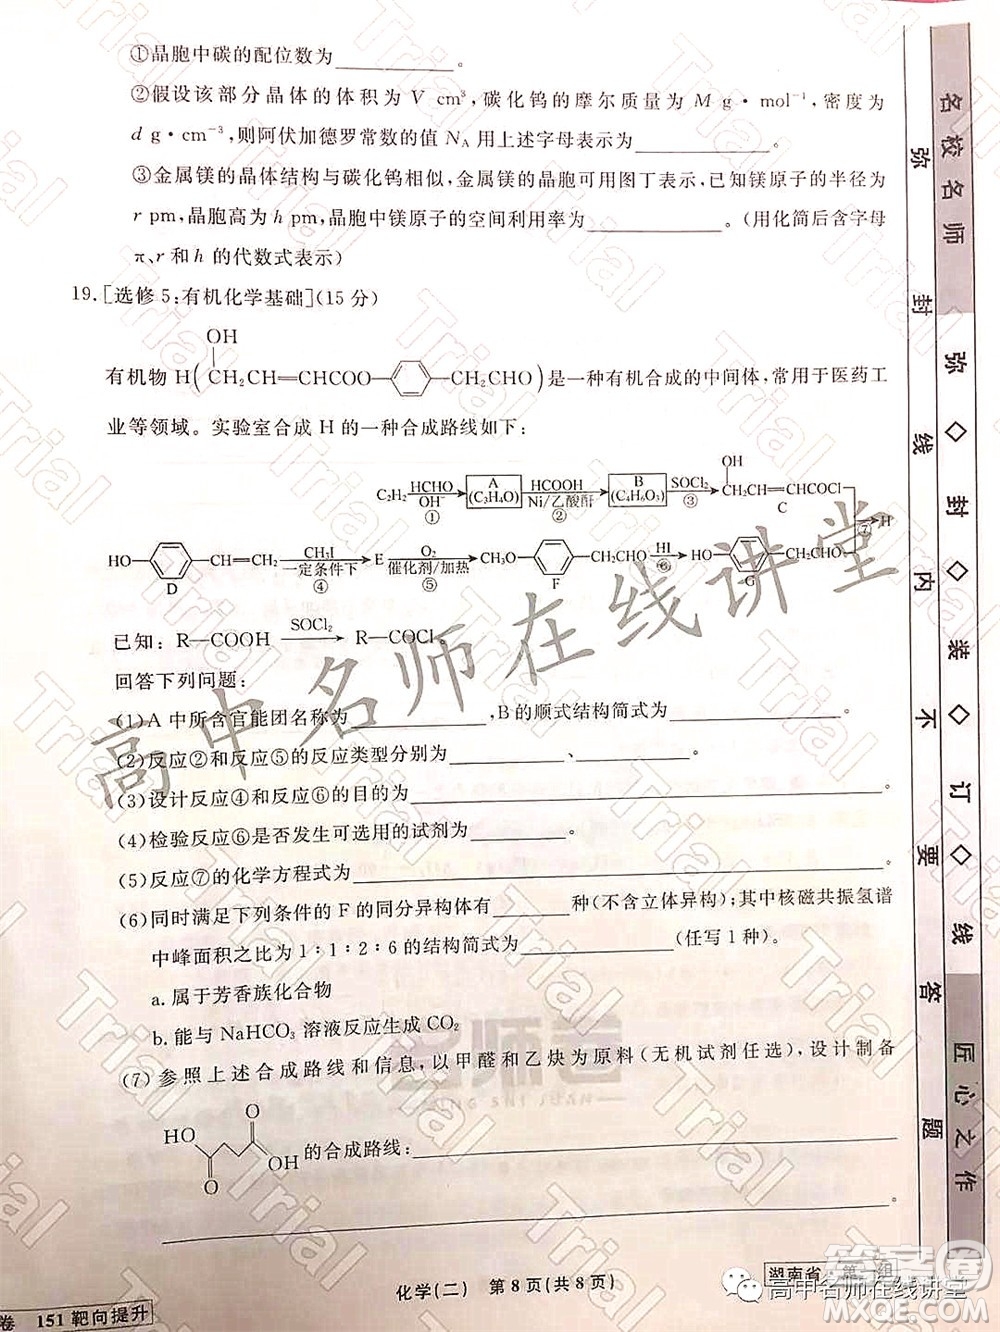 ①晶胞中碳的配位数为________。
②假设该部分晶体的体积为 V cm³,碳化钨的摩尔质量为 M g·mol⁻¹,密度为
d g·cm⁻³,则阿伏加德罗常数的值 N_A 用上述字母表示为________。
③金属镁的晶体结构与碳化钨相似,金属镁的晶胞可用图丁表示,已知镁原子的半径为
r pm,晶胞高为 h pm,晶胞中镁原子的空间利用率为________。(用化简后含字母
π、r 和 h 的代数式表示)
19.[选修 5:有机化学基础](15 分)
OH
有机物 H(CH₂CH═CHCOO—CH₂CHO)是一种有机合成的中间体,常用于医药工
业等领域。实验室合成 H 的一种合成路线如下:
C₂H₂ HCHO OH⁻ ① A (C₃H₄O) HCOOH Ni/乙酸酐 ② B (C₄H₆O₃) SOCl₂ ③ OH CH₂CH═CHCOCl
⑦ H
HO— D —CH═CH₂ CH₃I 一定条件下 ④ E O₂ 催化剂/加热 ⑤ CH₃O— F —CH₂CHO HI ⑥ HO— G —CH₂CHO
已知:R—COOH SOCl₂ R—COCl。
回答下列问题:
(1)A 中所含官能团名称为________,B 的顺式结构简式为________。
(2)反应②和反应⑤的反应类型分别为________、________。
(3)设计反应④和反应⑥的目的为________。
(4)检验反应⑥是否发生可选用的试剂为________。
(5)反应⑦的化学方程式为________。
(6)同时满足下列条件的 F 的同分异构体有________种(不含立体异构);其中核磁共振氢谱
中峰面积之比为 1∶1∶2∶6 的结构简式为________(任写 1 种)。
a. 属于芳香族化合物
b. 能与 NaHCO₃ 溶液反应生成 CO₂
(7)参照上述合成路线和信息,以甲醛和乙炔为原料(无机试剂任选),设计制备
HO O O OH 的合成路线:________
________。
化学(二) 第 8 页(共 8 页)
卷 151 靶向提升
湖南省 第一组
名校名师 弥◇封◇装◇订◇线 匠心之作
弥封线内不要答题
高中名师在线讲堂
名师卷
MING SHI JUAN
高中名师在线讲堂
答案圈
MXQE.COM
Trial